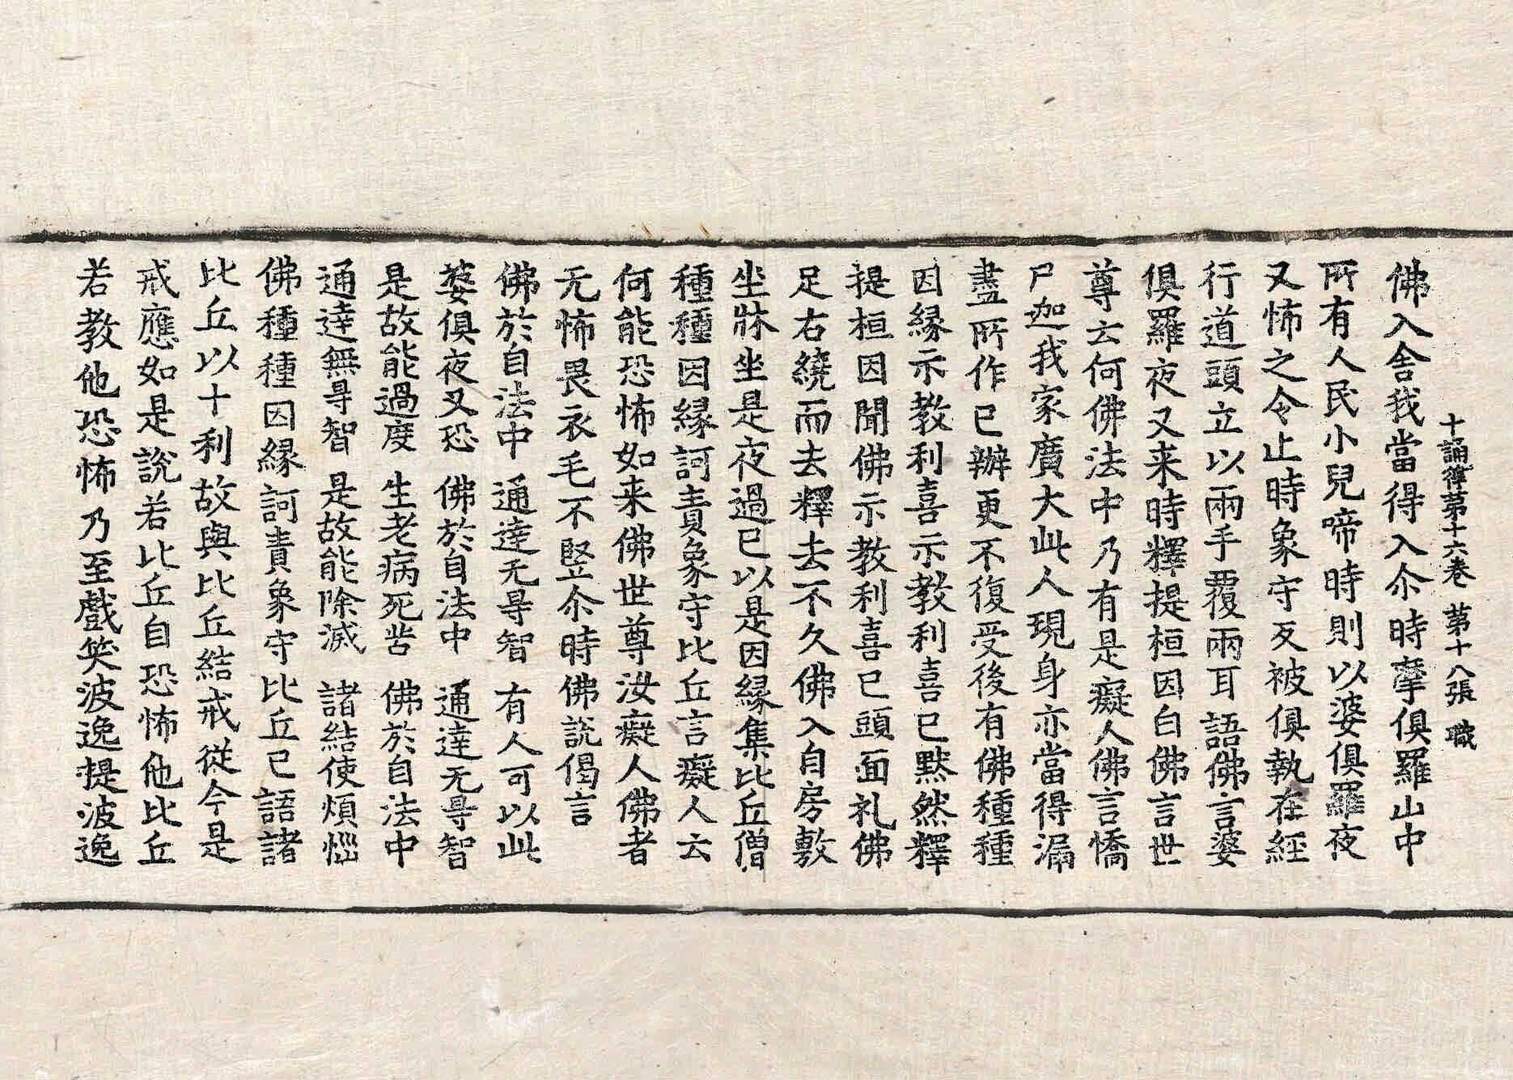 十誦律第十六卷 第十八張 職
佛入舍我當得入尒時摩俱羅山中
所有人民小兒啼時則以婆俱羅夜
叉怖之令止時象守反被俱執在經
行道頭立以兩手覆兩耳語佛言婆
俱羅夜叉来時釋提桓因白佛言世
尊云何佛法中乃有是癡人佛言憍
尸迦我家廣大此人現身亦當得漏
盡所作已辦更不復受後有佛種種
因縁示教利喜示教利喜已黙然釋
提桓因聞佛示教利喜已頭面礼佛
足右繞而去釋去不久佛入自房敷
坐牀坐是夜過已以是因縁集比丘僧
種種因縁訶責象守比丘言癡人云
何能恐怖如来佛世尊汝癡人佛者
无怖畏衣毛不竪尒時佛説偈言
佛於自法中 通達无㝵智 有人可以此
婆俱夜叉恐 佛於自法中 通達无㝵智
是故能過度 生老病死苦 佛於自法中
通達無㝵智 是故能除滅 諸結使煩惱
佛種種因縁訶責象守比丘已語諸
比丘以十利故與比丘結戒從今是
戒應如是說若比丘自恐怖他比丘
若教他恐怖乃至戲笑波逸提波逸